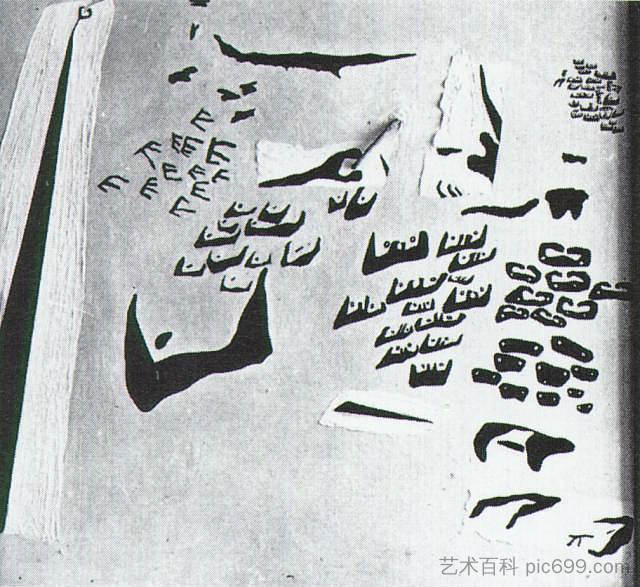 艺术百科 pic699.com